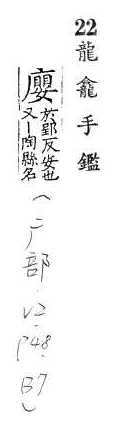 22 龍龕手鑑
廮 於郢反安也
又丨陶縣名
(广部. V2. P48. B7)